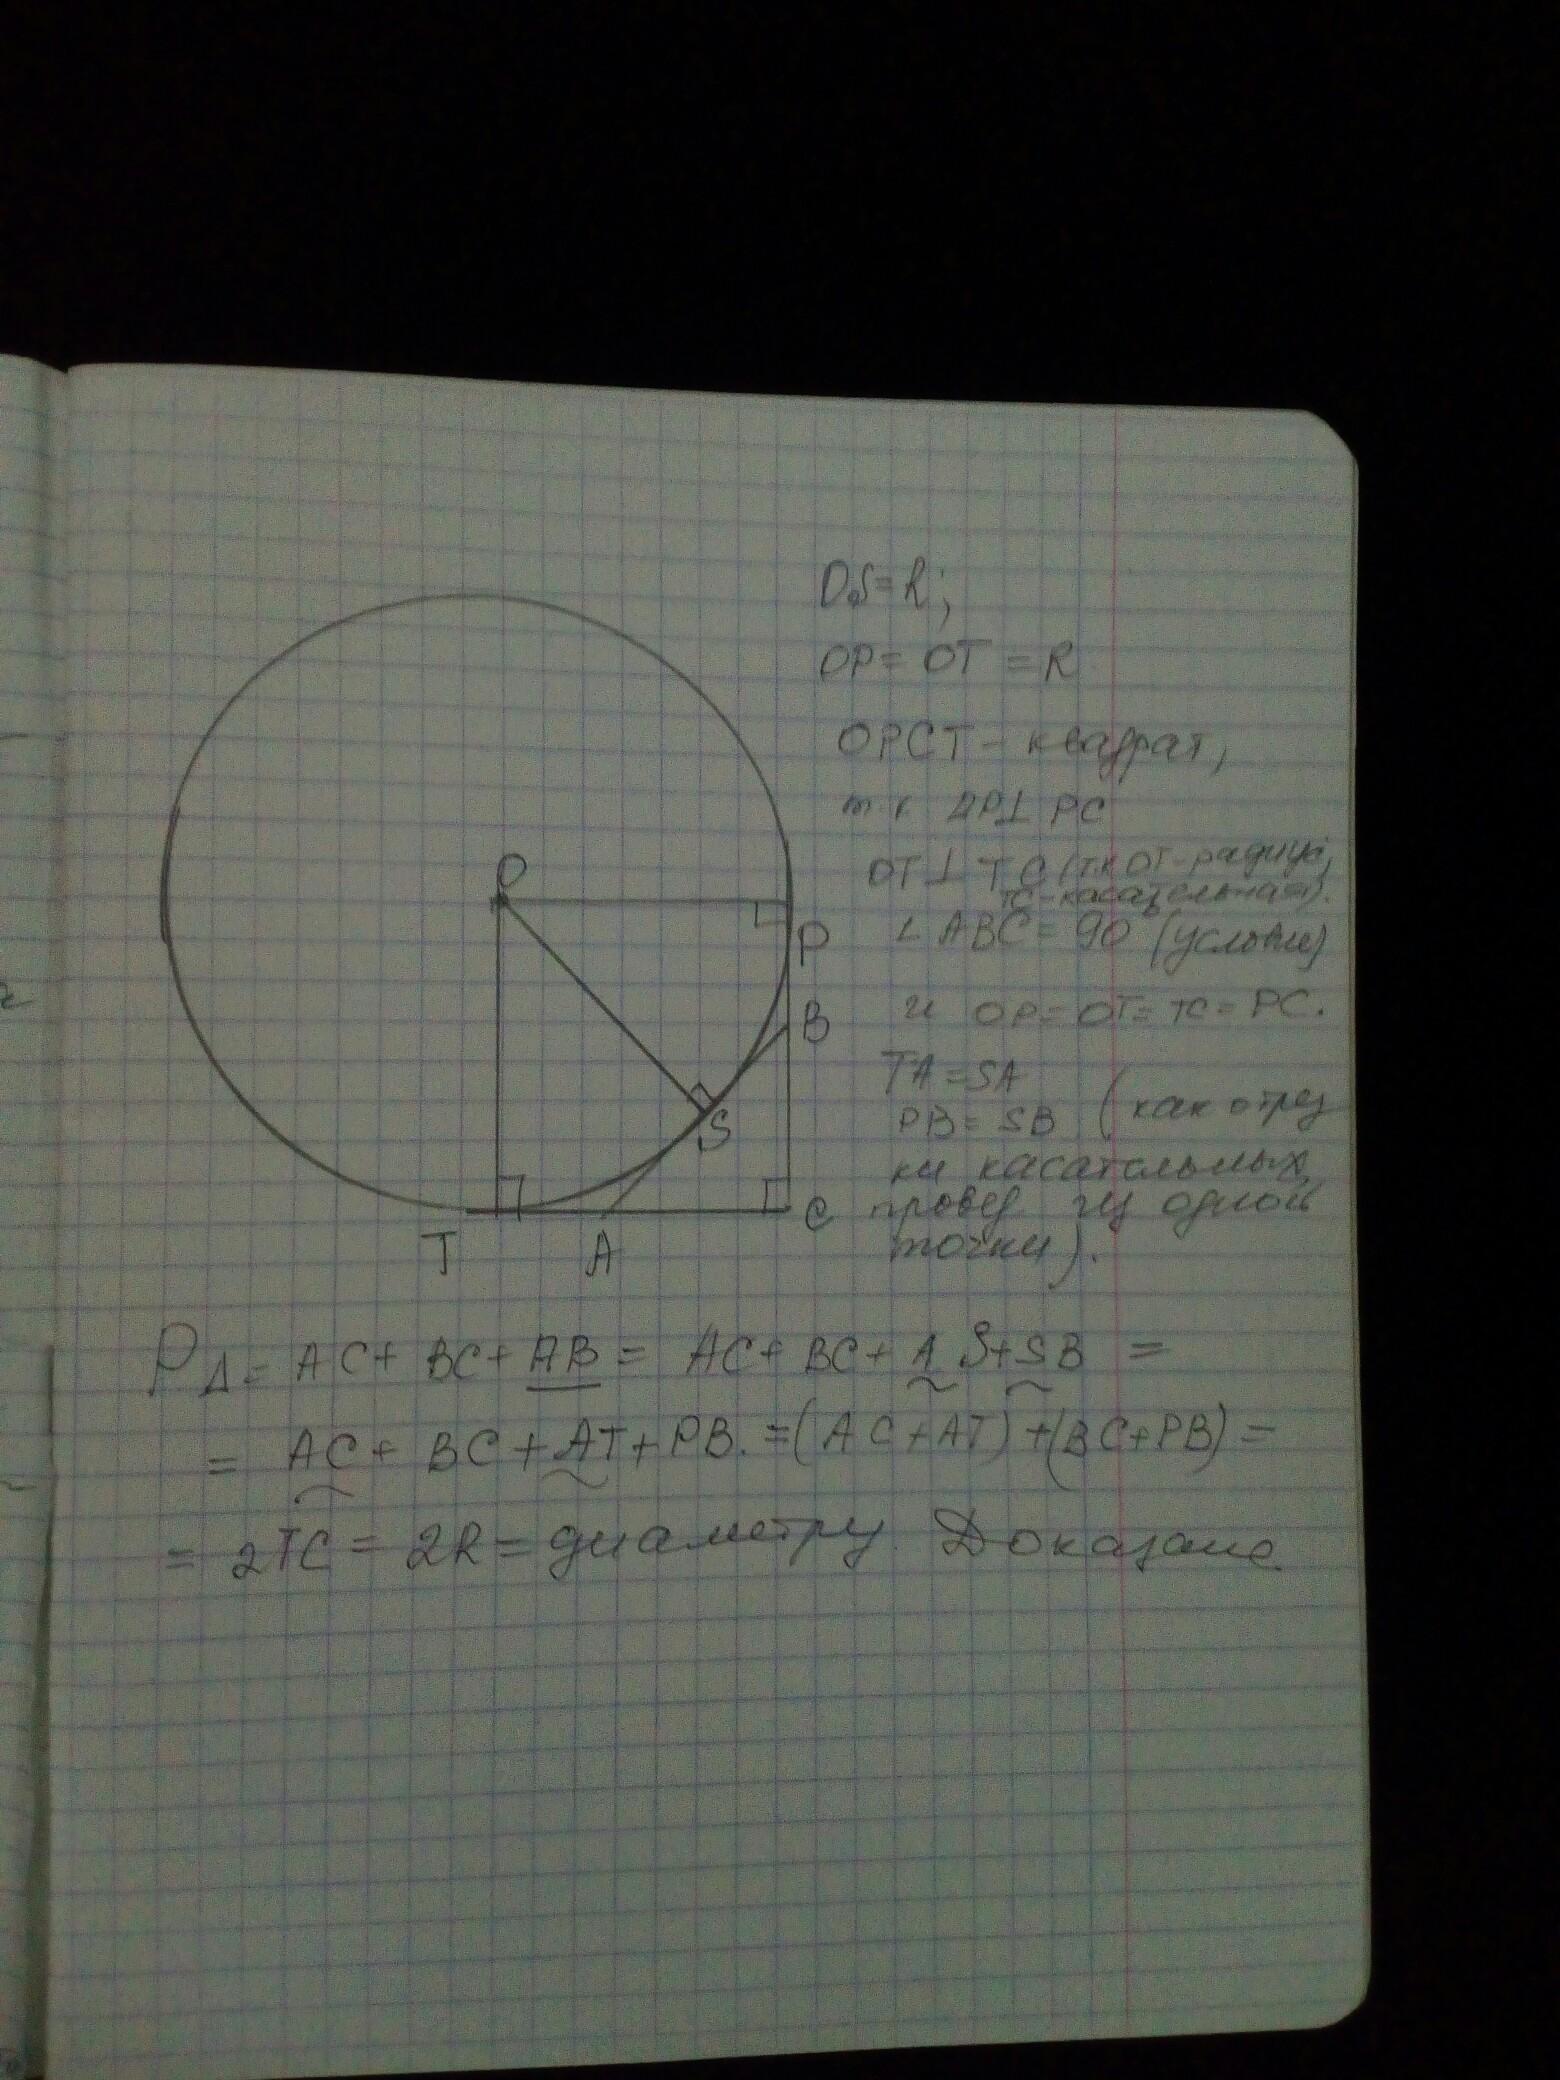 OS=R;
OP=OT=R
OPCT - квадрат,
т.к. OP⊥PC
OT⊥TC (т.к OT-радиус,
TC-касательная).
∠ABC=90 (условие)
и OP=OT=TC=PC.
TA=SA
PB=SB (как отрез
ки касательных,
провед. из одной
точки).
O
P
B
S
C
T
A
P∆=AC+BC+AB=AC+BC+AS+SB=
=AC+BC+AT+PB.=(AC+AT)+(BC+PB)=
=2TC=2R=диаметру. Доказано